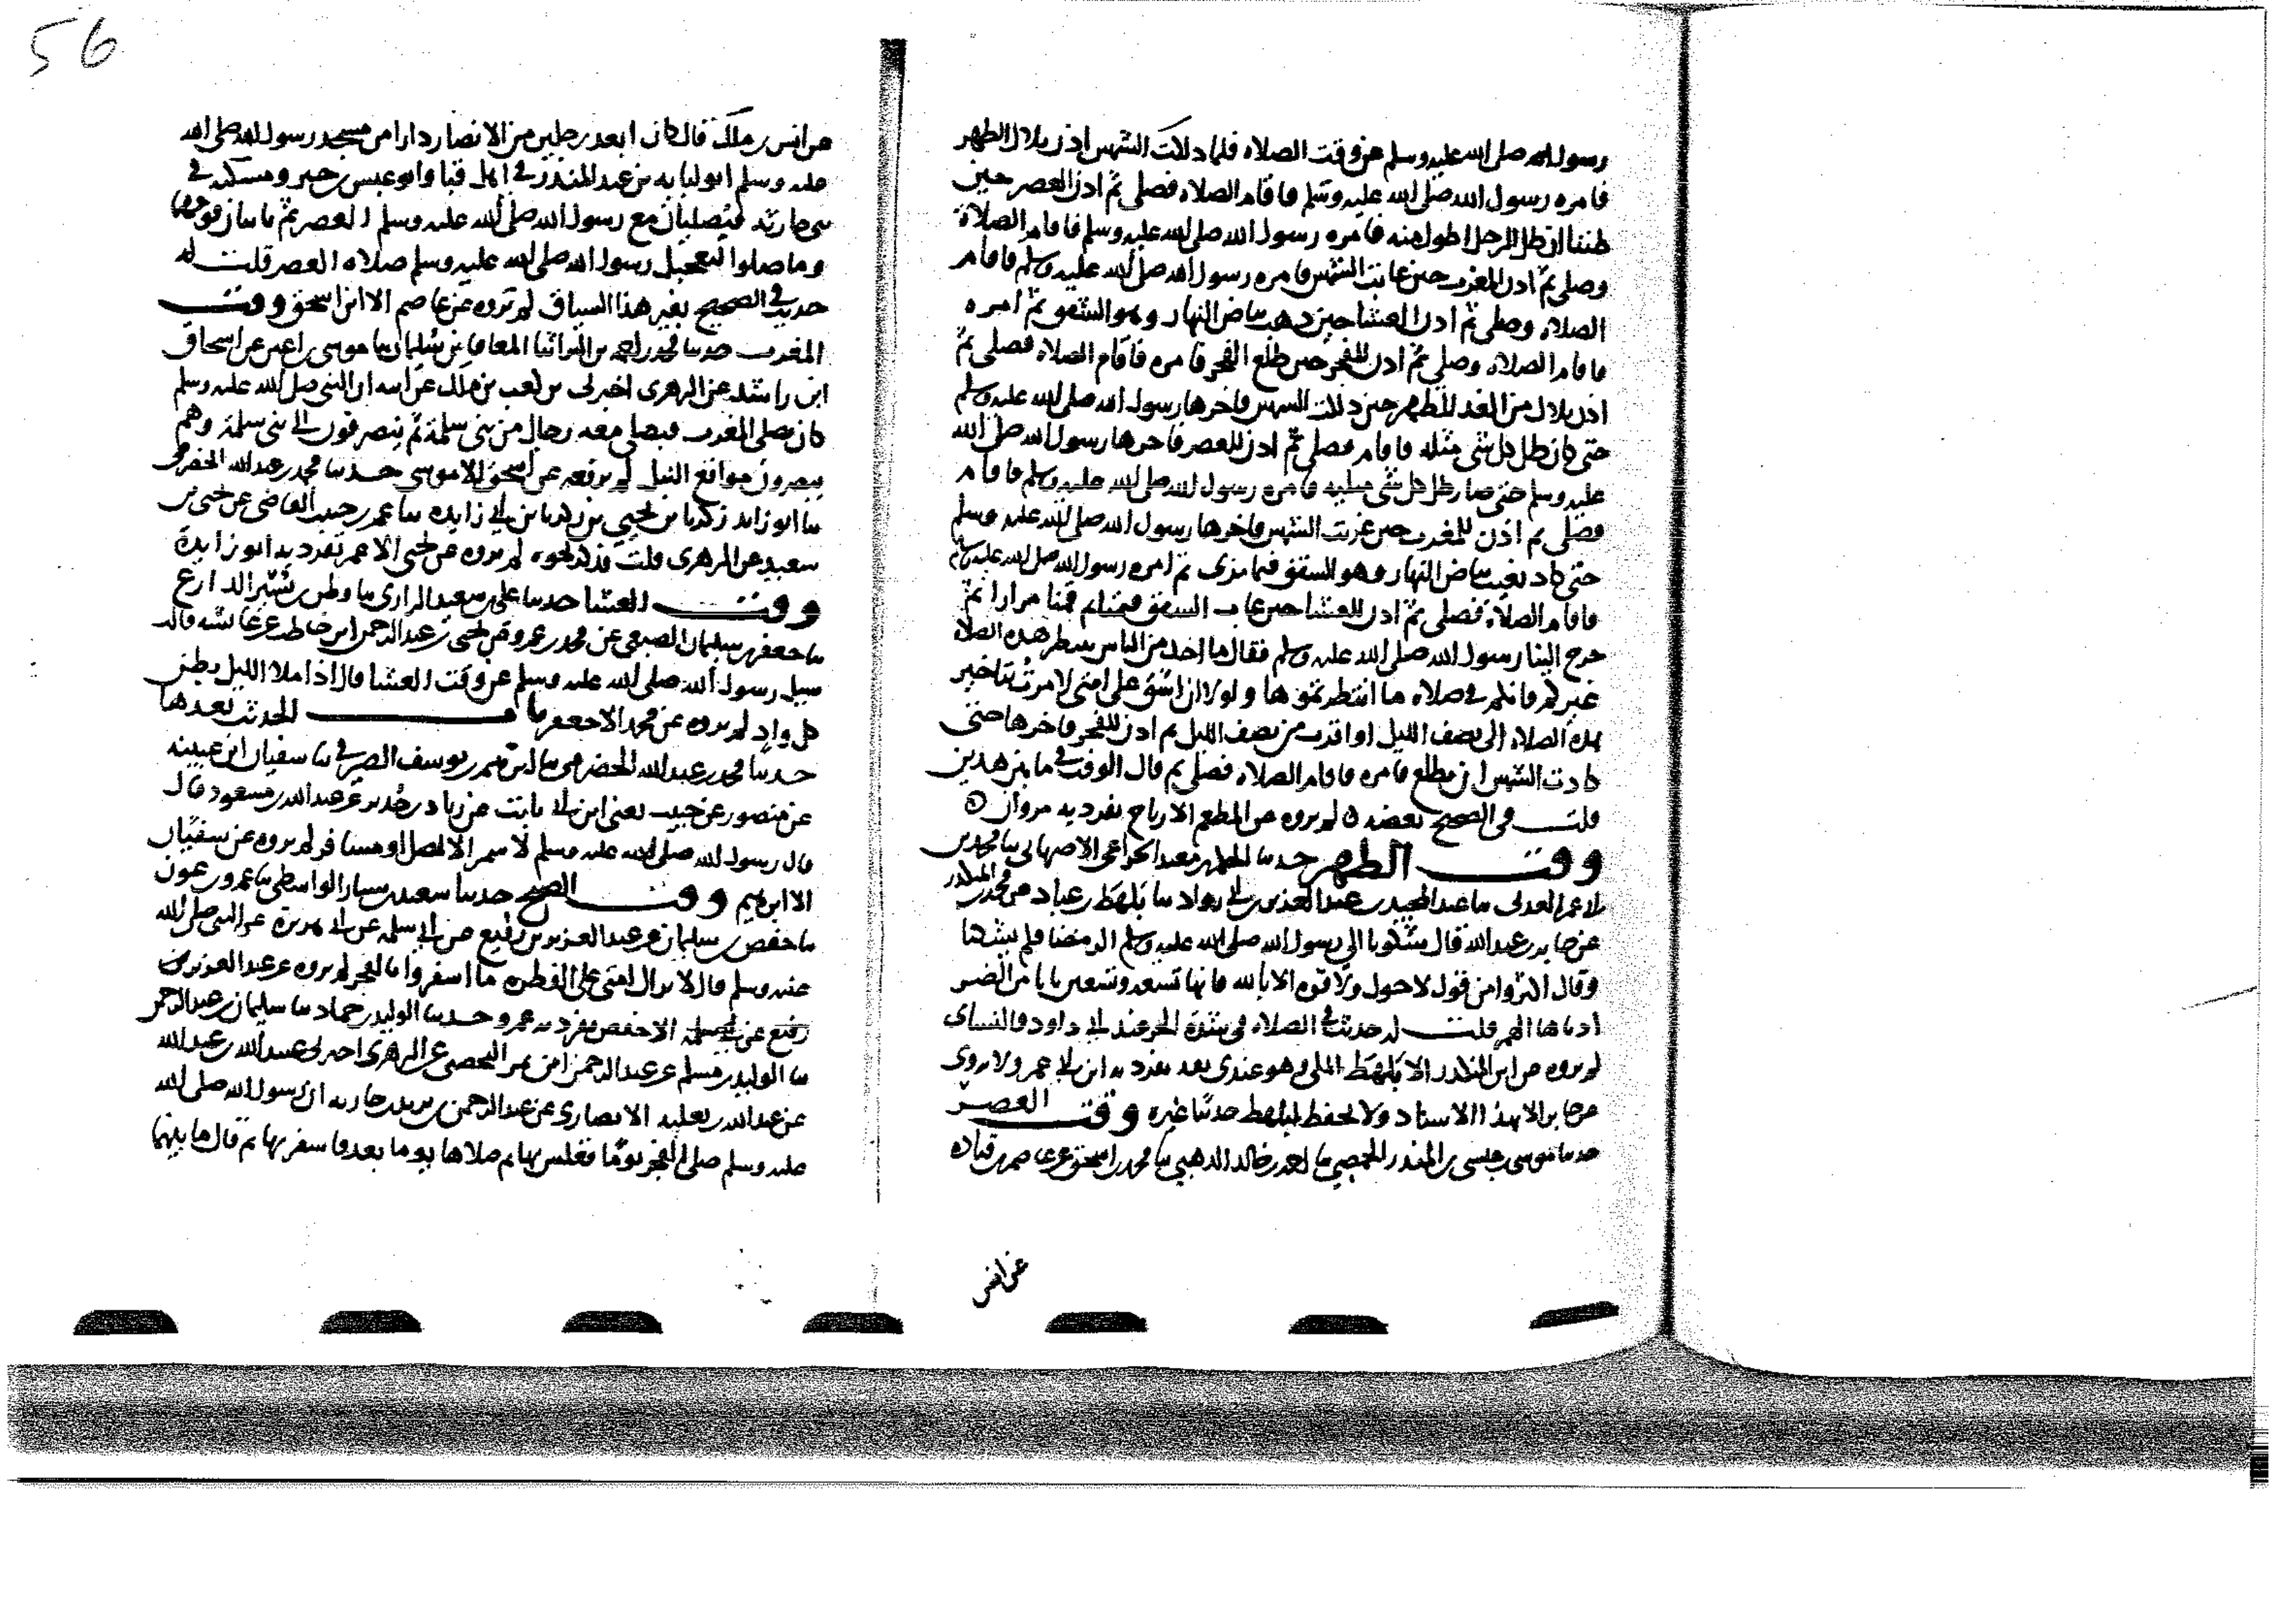 56
رسول الله صلى الله عليه وسلم عن وقت الصلاه فلما دلكت الشمس اذن بلال الظهر
فامره رسول الله صلى الله عليه وسلم فاقام الصلاه فصلى ثم اذن العصر حين
ظننا ان ظل الرجل اطول منه فامره رسول الله صلى الله عليه وسلم فاقام الصلاة
وصلى ثم اذن المغرب حين غابت الشمس فامره رسول الله صلى الله عليه وسلم فاقام
الصلاه وصلى ثم اذن العشا حين ذهب بياض النهار وهو الشفق ثم امره
فاقام الصلاه وصلى ثم اذن للفجر حين طلع الفجر فامره فاقام الصلاه فصلى ثم
اذن بلال من الغد للظهر حين دلكت الشمس فاخرها رسول الله صلى الله عليه وسلم
حتى كان ظل كل شى مثله فاقام فصلى ثم اذن للعصر فاخرها رسول الله صلى الله
عليه وسلم حتى صار ظل كل شى مثليه فامره رسول الله صلى الله عليه وسلم فاقام
فصلى ثم اذن للمغرب حين غربت الشمس فاخرها رسول الله صلى الله عليه وسلم
حتى كاد يغيب بياض النهار وهو الشفق فيما نرى ثم امره رسول الله صلى الله عليه وسلم
فاقام الصلاة فصلى ثم اذن للعشا حين غاب الشفق فنمنا ثم قمنا مرارا ثم
خرج الينا رسول الله صلى الله عليه وسلم فقال ما احد من الناس ينتظر هذه الصلاة
غيركم فانكم فى صلاه ما انتظرتموها ولولا ان اشق على امتى لامرت بتاخير
هذه الصلاه الى نصف الليل او اقرب من نصف الليل ثم اذن للفجر فاخرها حتى
كادت الشمس ان تطلع فامره فاقام الصلاه فصلى ثم قال الوقت فى ما بين هذين
قلت فى الصحيح بعضه لم يروه عن المطعم الا رباح تفرد به مروان
وقت الظهر حدثنا المطهر معبد الخزاعى الاصبهانى ثنا محمد بن
ابى عمر العدنى ثنا عبد المجيد بن عبد العزيز بن ابى رواد ثنا بلهط بن عباد عن محمد بن المنكدر
عن جابر بن عبد الله قال شكونا الى رسول الله صلى الله عليه وسلم الرمضا فلم يشكها
وقال اكثروا من قول لا حول ولا قوه الا بالله فانها تسعه وتسعين بابا من الضر
ادناها الهم قلت له حديث فى الصلاه فى شدة الحر عند ابى داود والنساى
لم يروه عن ابن المنكدر الا بلهط المكى وهو عندى ثقه تفرد به ابن ابى عمر ولا يروى
عن جابر الا بهذا الاسناد ولا يحفظ لبلهط حديثا غيره وقت العصر
حدثنا موسى بن عيسى بن المنذر الحمصى ثنا احمد بن خالد الذهبى ثنا محمد بن اسحق عن عاصم بن قتاده
عن انس
عن انس بن ملك قال كان ابعد رجلين من الانصار دارا من مسجد رسول الله صلى الله
عليه وسلم ابو لبابه بن عبد المنذر فى اهل قبا وابو عبس بن جبر ومسكنه فى
بنى حارثه فيصليان مع رسول الله صلى الله عليه وسلم العصر ثم ياتيان قومهما
وما صلوا لتعجيل رسول الله صلى الله عليه وسلم صلاه العصر قلت له
حديث فى الصحيح بغير هذا السياق لم يروه عن عاصم الا ابن اسحق وقت
المغرب حدثنا محمد بن احمد بن البرا ثنا المعافا بن سليمان ثنا موسى بن اعين عن اسحاق
ابن راشد عن الزهرى اخبرنى بن كعب بن ملك عن ابيه ان النبى صلى الله عليه وسلم
كان يصلى المغرب فيصلى معه رجال من بنى سلمة ثم ينصرفون الى بنى سلمة وهم
يبصرون مواقع النبل لم يرفعه عن اسحق الا موسى حدثنا محمد بن عبد الله الحضرمى
ثنا ابو زائد زكريا بن يحيى بن زكريا بن ابى زايده ثنا عمر بن حبيب القاضى عن يحيى بن
سعيد عن الزهرى قلت فذكر نحوه لم يروه عن يحيى الا عمر تفرد به ابو زايدة
وقت العشا حدثنا على بن سعيد الرازى ثنا وطر بن نسير الدارع
ثنا جعفر بن سليمان الضبعى عن محمد بن عمرو عن يحيى بن عبد الرحمن ابن حاطب عن عائشه قالت
سيل رسول الله صلى الله عليه وسلم عن وقت العشا قال اذا ملا الليل بطن
كل واد لم يروه عن محمد الا جعفر باب الحديث بعدها
حدثنا محمد بن عبد الله الحضرمى ثنا ابرهيم بن يوسف الصيرفى ثنا سفيان ابن عيينه
عن منصور عن حبيب يعنى ابن ابى ثابت عن زياد بن حدير عن عبد الله بن مسعود قال
قال رسول الله صلى الله عليه وسلم لا سمر الا لمصل او مسافر لم يروه عن سفيان
الا ابرهيم وقت الصبح حدثنا سعيد بن سيار الواسطى ثنا عمرو بن عون
ثنا حفص بن سليمان عن عبد العزيز بن رفيع عن ابى سلمه عن ابى هريرة عن النبى صلى الله
عليه وسلم قال لا يزال امتى على الفطره ما اسفروا بالفجر لم يروه عن عبد العزيز بن
رفيع عن ابى سلمه الا حفص تفرد به عمرو حدثنا الوليد بن حماد ثنا سليمان بن عبد الرحمن
ثنا الوليد بن مسلم عن عبد الرحمن ابن نمر اليحصبى عن الزهرى اخبرنى عبيد الله بن عبد الله
عن عبد الله بن ثعلبه الانصارى عن عبد الرحمن بن يزيد بن جاريه ان رسول الله صلى الله
عليه وسلم صلى الفجر يوما فغلس بها ثم صلاها يوما بعد فاسفر بها ثم قال ما بينهما